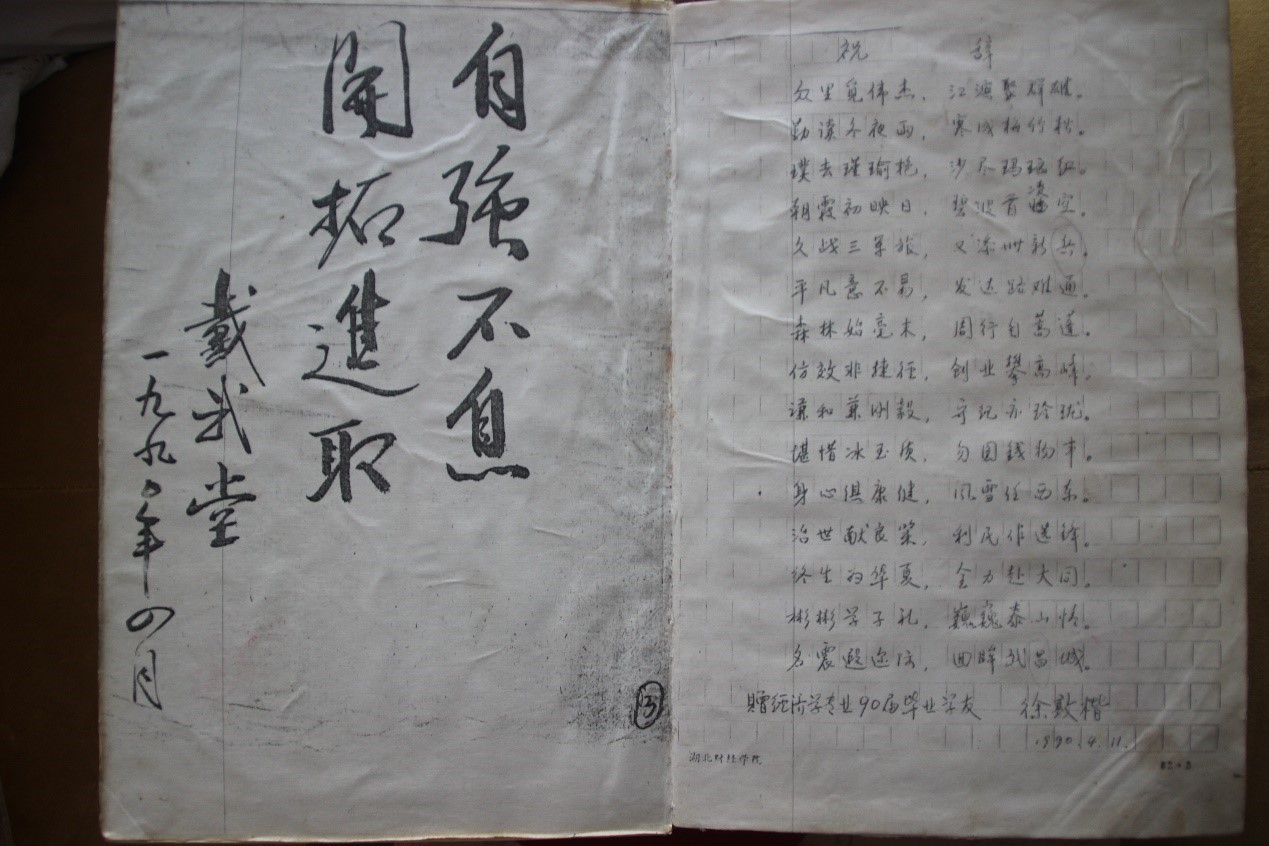 自强不息
開拓進取
戴武堂
一九九〇年四月
13
祝 辞
众里觅伟杰，江滨聚群雄。
勤读冬夜雨，寒成梅竹松。
璞去瑾瑜艳，沙尽玛瑙红。
朝霞初映日，碧波首凌空。
久战三军旅，又添州新兵。
平凡意不易，发达路难通。
森林始毫末，周行自蒿蓬。
仿效非捷径，创业攀高峰。
谦和兼刚毅，守纪亦玲珑。
堪惜冰玉质，勿因钱物丰。
身心俱康健，风雪任西东。
治世献良策，利民作选锋。
终生为华夏，全力赴大同。
彬彬学子礼，巍巍泰山情。
名震遐迩后，回眸武昌城。
赠经济学专业90届毕业学友 徐敦楷
1990.4.11.
湖北财经学院